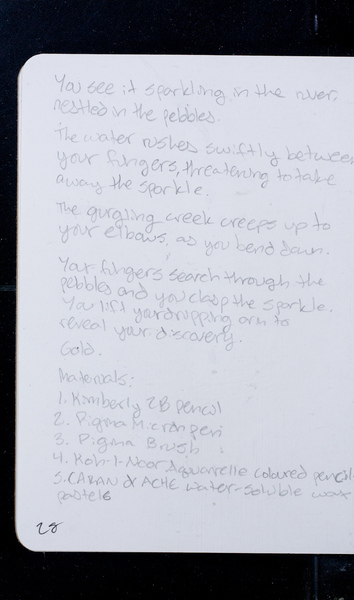 You see it sparkling in the river,
nestled in the pebbles.
The water rushes swiftly between
your fingers, threatening to take
away the sparkle.
The gurgling creek creeps up to
your elbows, as you bend down.
Your fingers search through the
pebbles and you clasp the sparkle.
You lift your dripping arm to
reveal your discovery.
Gold.
Materials:
1. Kimberly 2B pencil
2. Pigma Micron pen
3. Pigma Brush
4. Koh-I-Noor Aquarelle coloured pencil
5. CARAN d'ACHE water-soluble wax
pastels
28